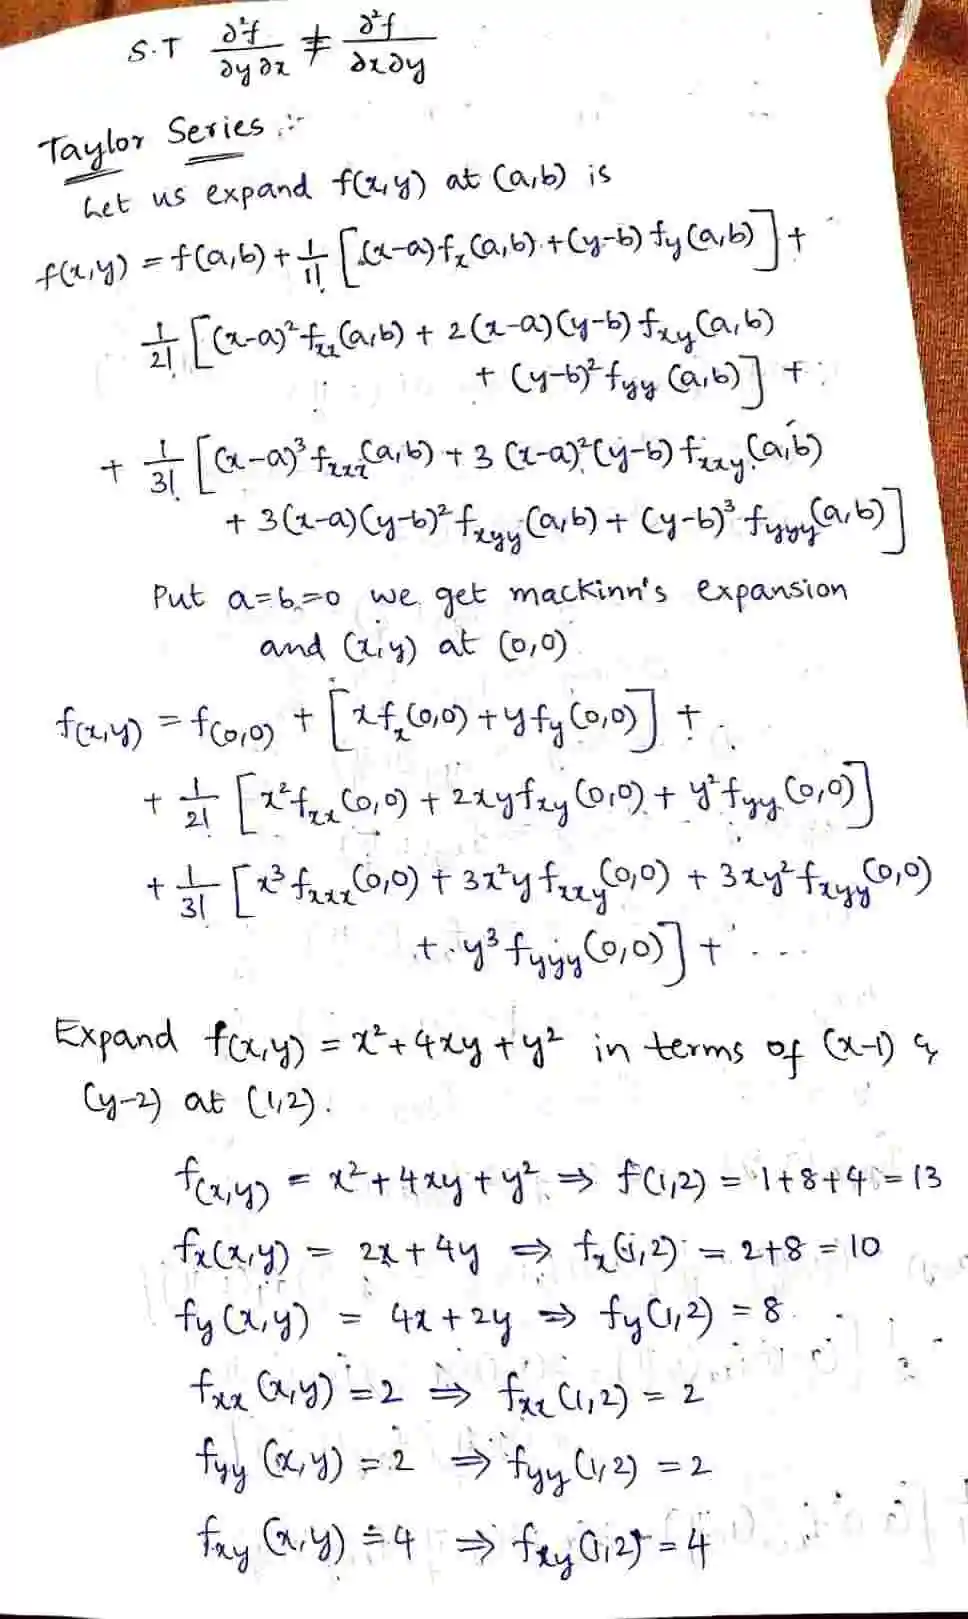 S.T ∂²f/∂y∂x ≠ ∂²f/∂x∂y
Taylor Series :-
Let us expand f(x,y) at (a,b) is
f(x,y) = f(a,b) + 1/1! [(x-a)fₓ(a,b) + (y-b) f_y(a,b)] +
1/2! [(x-a)² f_xx(a,b) + 2(x-a)(y-b) f_xy(a,b)
+ (y-b)² f_yy (a,b)] +
+ 1/3! [(x-a)³ f_xxx(a,b) + 3 (x-a)²(y-b) f_xxy(a,b)
+ 3(x-a)(y-b)² f_xyy(a,b) + (y-b)³ f_yyy(a,b)]
Put a=b=0 we get mackinn's expansion
and (x,y) at (0,0)
f(x,y) = f(0,0) + [x fₓ(0,0) + y f_y(0,0)] +
+ 1/2! [x² f_xx(0,0) + 2xy f_xy(0,0) + y² f_yy(0,0)]
+ 1/3! [x³ f_xxx(0,0) + 3x²y f_xxy(0,0) + 3xy² f_xyy(0,0)
+ y³ f_yyy(0,0)] + ...
Expand f(x,y) = x² + 4xy + y² in terms of (x-1) &
(y-2) at (1,2).
f(x,y) = x² + 4xy + y² ⇒ f(1,2) = 1+8+4 = 13
fx(x,y) = 2x + 4y ⇒ fₓ(1,2) = 2+8 = 10
fy(x,y) = 4x + 2y ⇒ fy(1,2) = 8
fxx(x,y) = 2 ⇒ fxx(1,2) = 2
fyy(x,y) = 2 ⇒ fyy(1,2) = 2
fxy(x,y) = 4 ⇒ fxy(1,2) = 4